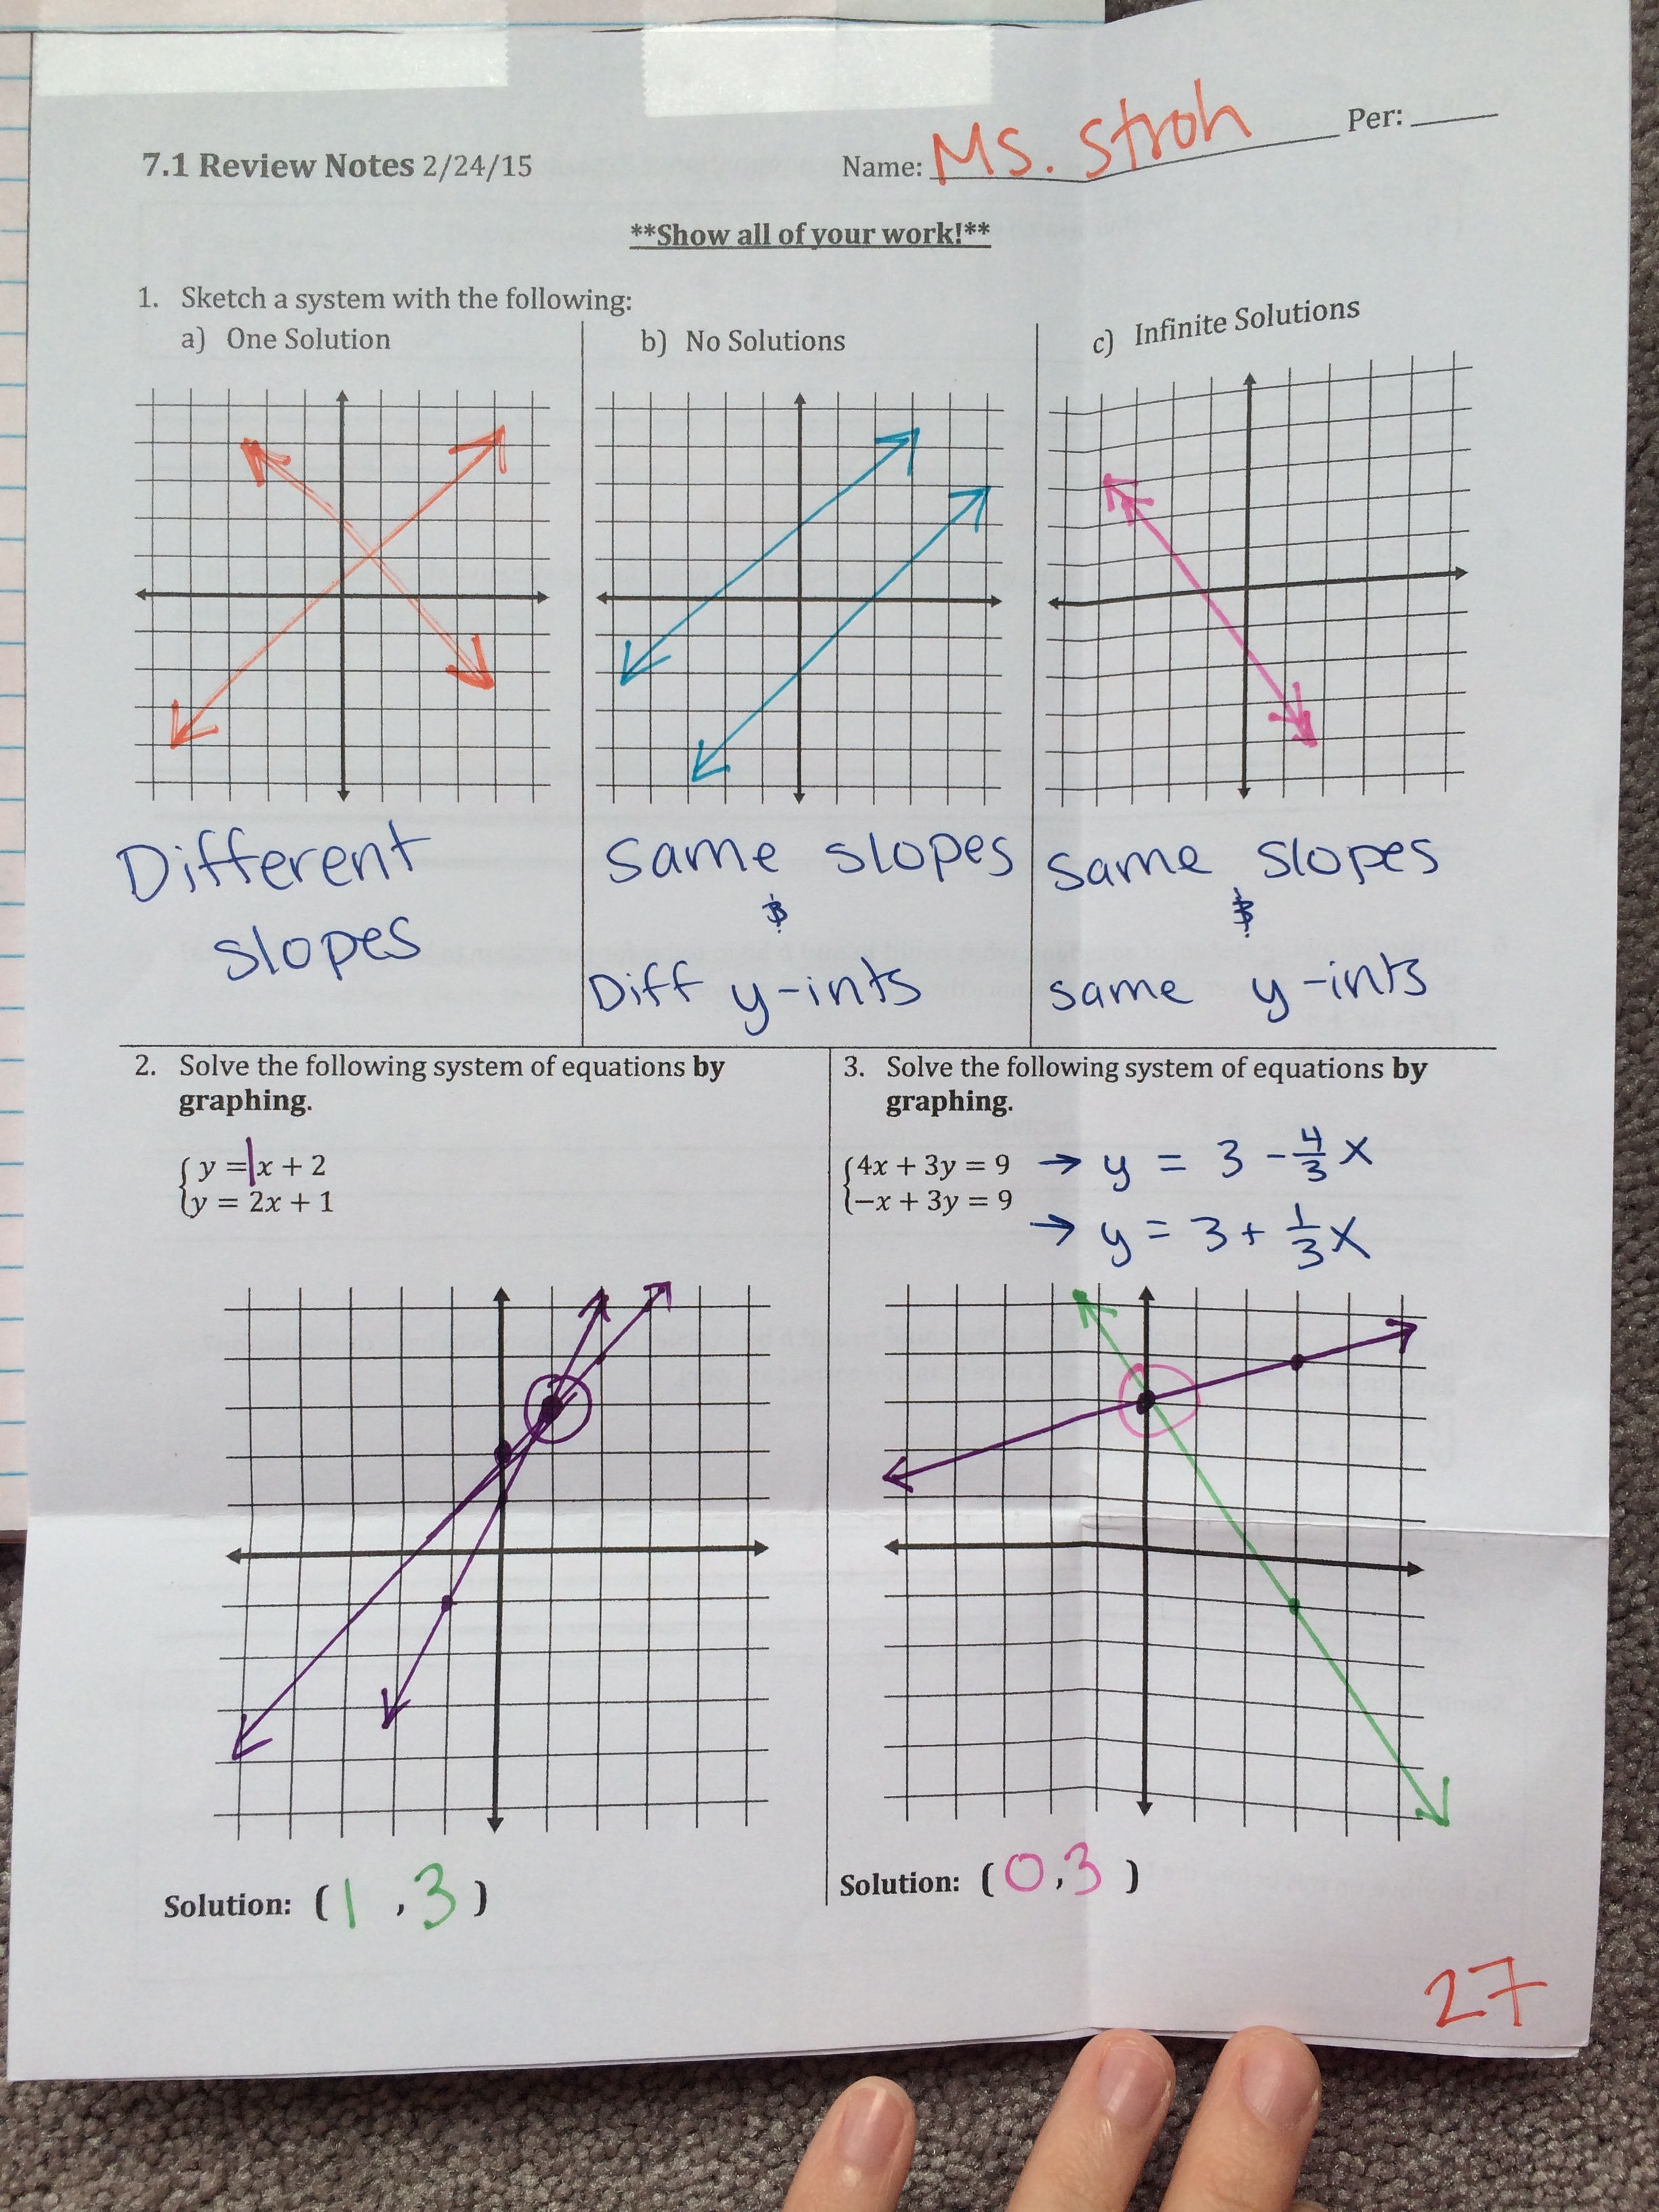 7.1 Review Notes 2/24/15 Name: Ms. Stroh Per:
**Show all of your work!**
1. Sketch a system with the following:
a) One Solution
b) No Solutions
c) Infinite Solutions
Different
slopes
same slopes
&
Diff y-ints
same slopes
&
same y-ints
2. Solve the following system of equations by
graphing.
{y = 1x + 2
y = 2x + 1
Solution: (1, 3)
3. Solve the following system of equations by
graphing.
{4x + 3y = 9 → y = 3 - 4/3 x
-x + 3y = 9 → y = 3 + 1/3 x
Solution: (0,3)
27